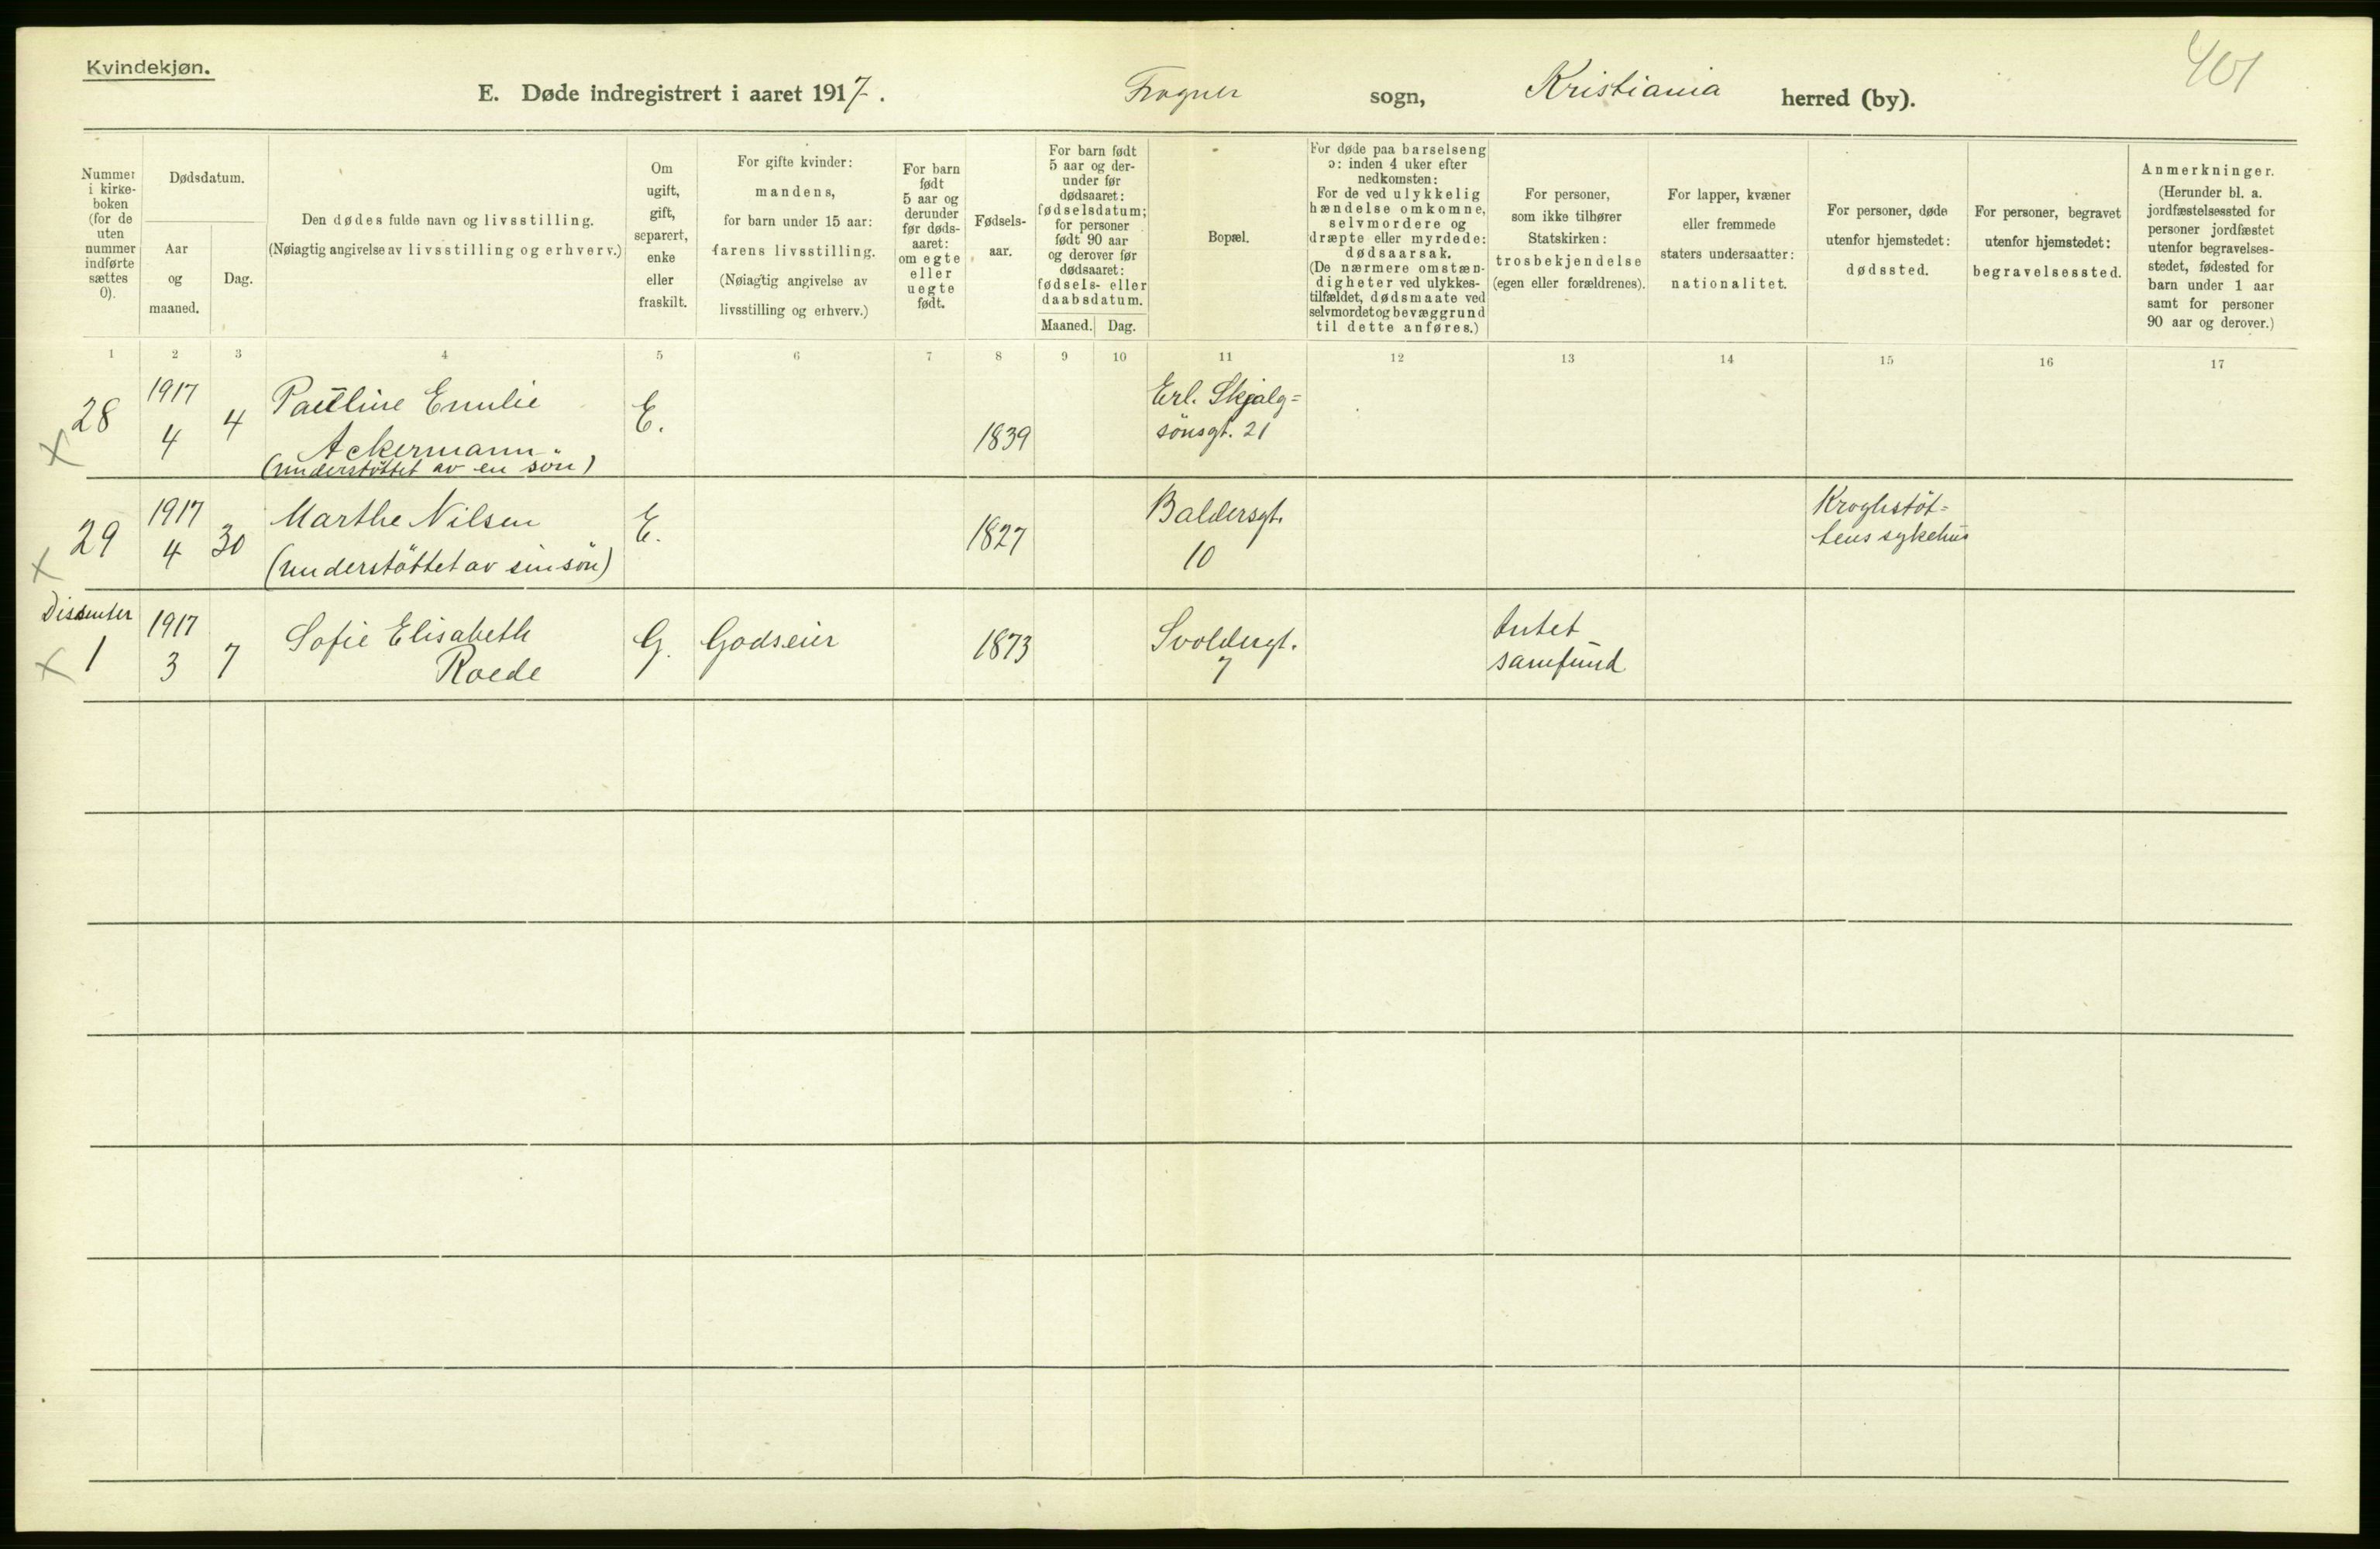 Kvindekjøn.
401
E. Døde indregistrert i aaret 1917.
Frogner sogn, Kristiania herred (by).
Nummer
i kirke-
boken
(for de
uten
nummer
indførte
sættes
0).
Dødsdatum.
Aar
og
maaned.
Dag.
Den dødes fulde navn og livsstilling.
(Nøiagtig angivelse av livsstilling og erhverv.)
Om
ugift,
gift,
separert,
enke
eller
fraskilt.
For gifte kvinder:
mandens,
for barn under 15 aar:
farens livsstilling.
(Nøiagtig angivelse av
livsstilling og erhverv.)
For barn
født
5 aar og
derunder
før døds-
aaret:
om egte
eller
uegte
født.
Fødsels-
aar.
For barn født
5 aar og der-
under før
dødsaaret:
fødselsdatum;
for personer
født 90 aar
og derover før
dødsaaret:
fødsels- eller
daabsdatum.
Maaned.
Dag.
Bopæl.
For døde paa barselseng
ɔ: inden 4 uker efter
nedkomsten:
For de ved ulykkelig
hændelse omkomne,
selvmordere og
dræpte eller myrdede:
dødsaarsak.
(De nærmere omstæn-
digheter ved ulykkes-
tilfældet, dødsmaate ved
selvmordet og bevæggrund
til dette anføres.)
For personer,
som ikke tilhører
Statskirken:
trosbekjendelse
(egen eller forældrenes).
For lapper, kvæner
eller fremmede
staters undersaatter:
nationalitet.
For personer, døde
utenfor hjemstedet:
dødssted.
For personer, begravet
utenfor hjemstedet:
begravelsessted.
Anmerkninger.
(Herunder bl. a.
jordfæstelsessted for
personer jordfæstet
utenfor begravelses-
stedet, fødested for
barn under 1 aar
samt for personer
90 aar og derover.)
1 2 3 4 5 6 7 8 9 10 11 12 13 14 15 16 17
X 28
1917
4
4
Pauline Emilie
Ackermann
(understöttet av en sön)
E.
1839
Erl. Skjalg=
sönsgt. 21
X 29
1917
4
30
Marthe Nilsen
(understöttet av sin sön)
E.
1827
Baldersgt.
10
Kroghstöt=
tens sykehus
Dissenter
X 1
1917
3
7
Sofie Elisabeth
Roede
G.
Godseier
1873
Svoldergt.
7
Intet
samfund